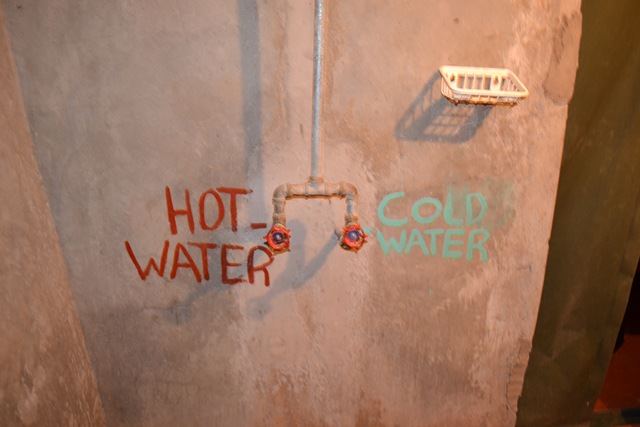 HOT
WATER
COLD
WATER